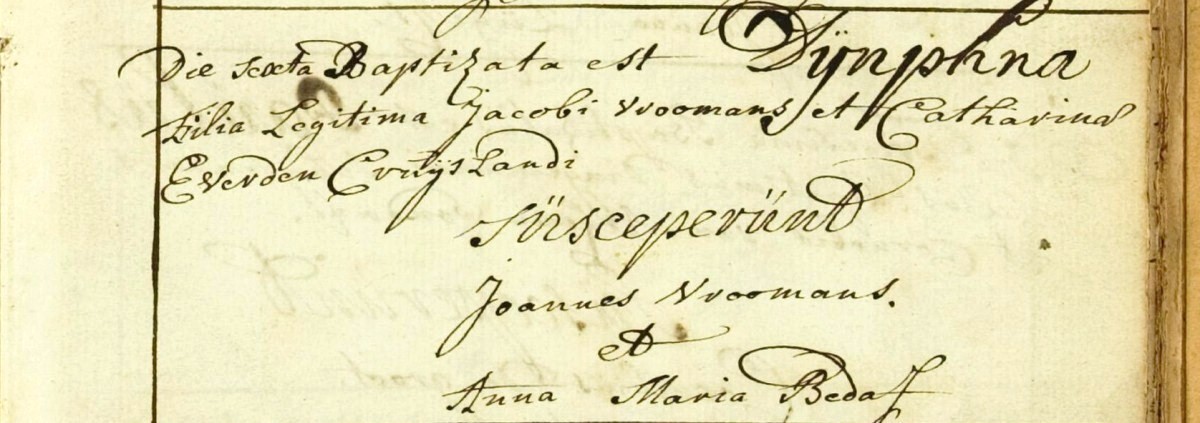 Die sexta Baptizata est Dÿnphna
Filia Legitima Jacobi Vroomans et Catharina
Everden Cruÿslandi
Süsceperünt
Joannes Vroomans.
et
Anna Maria Bedaf